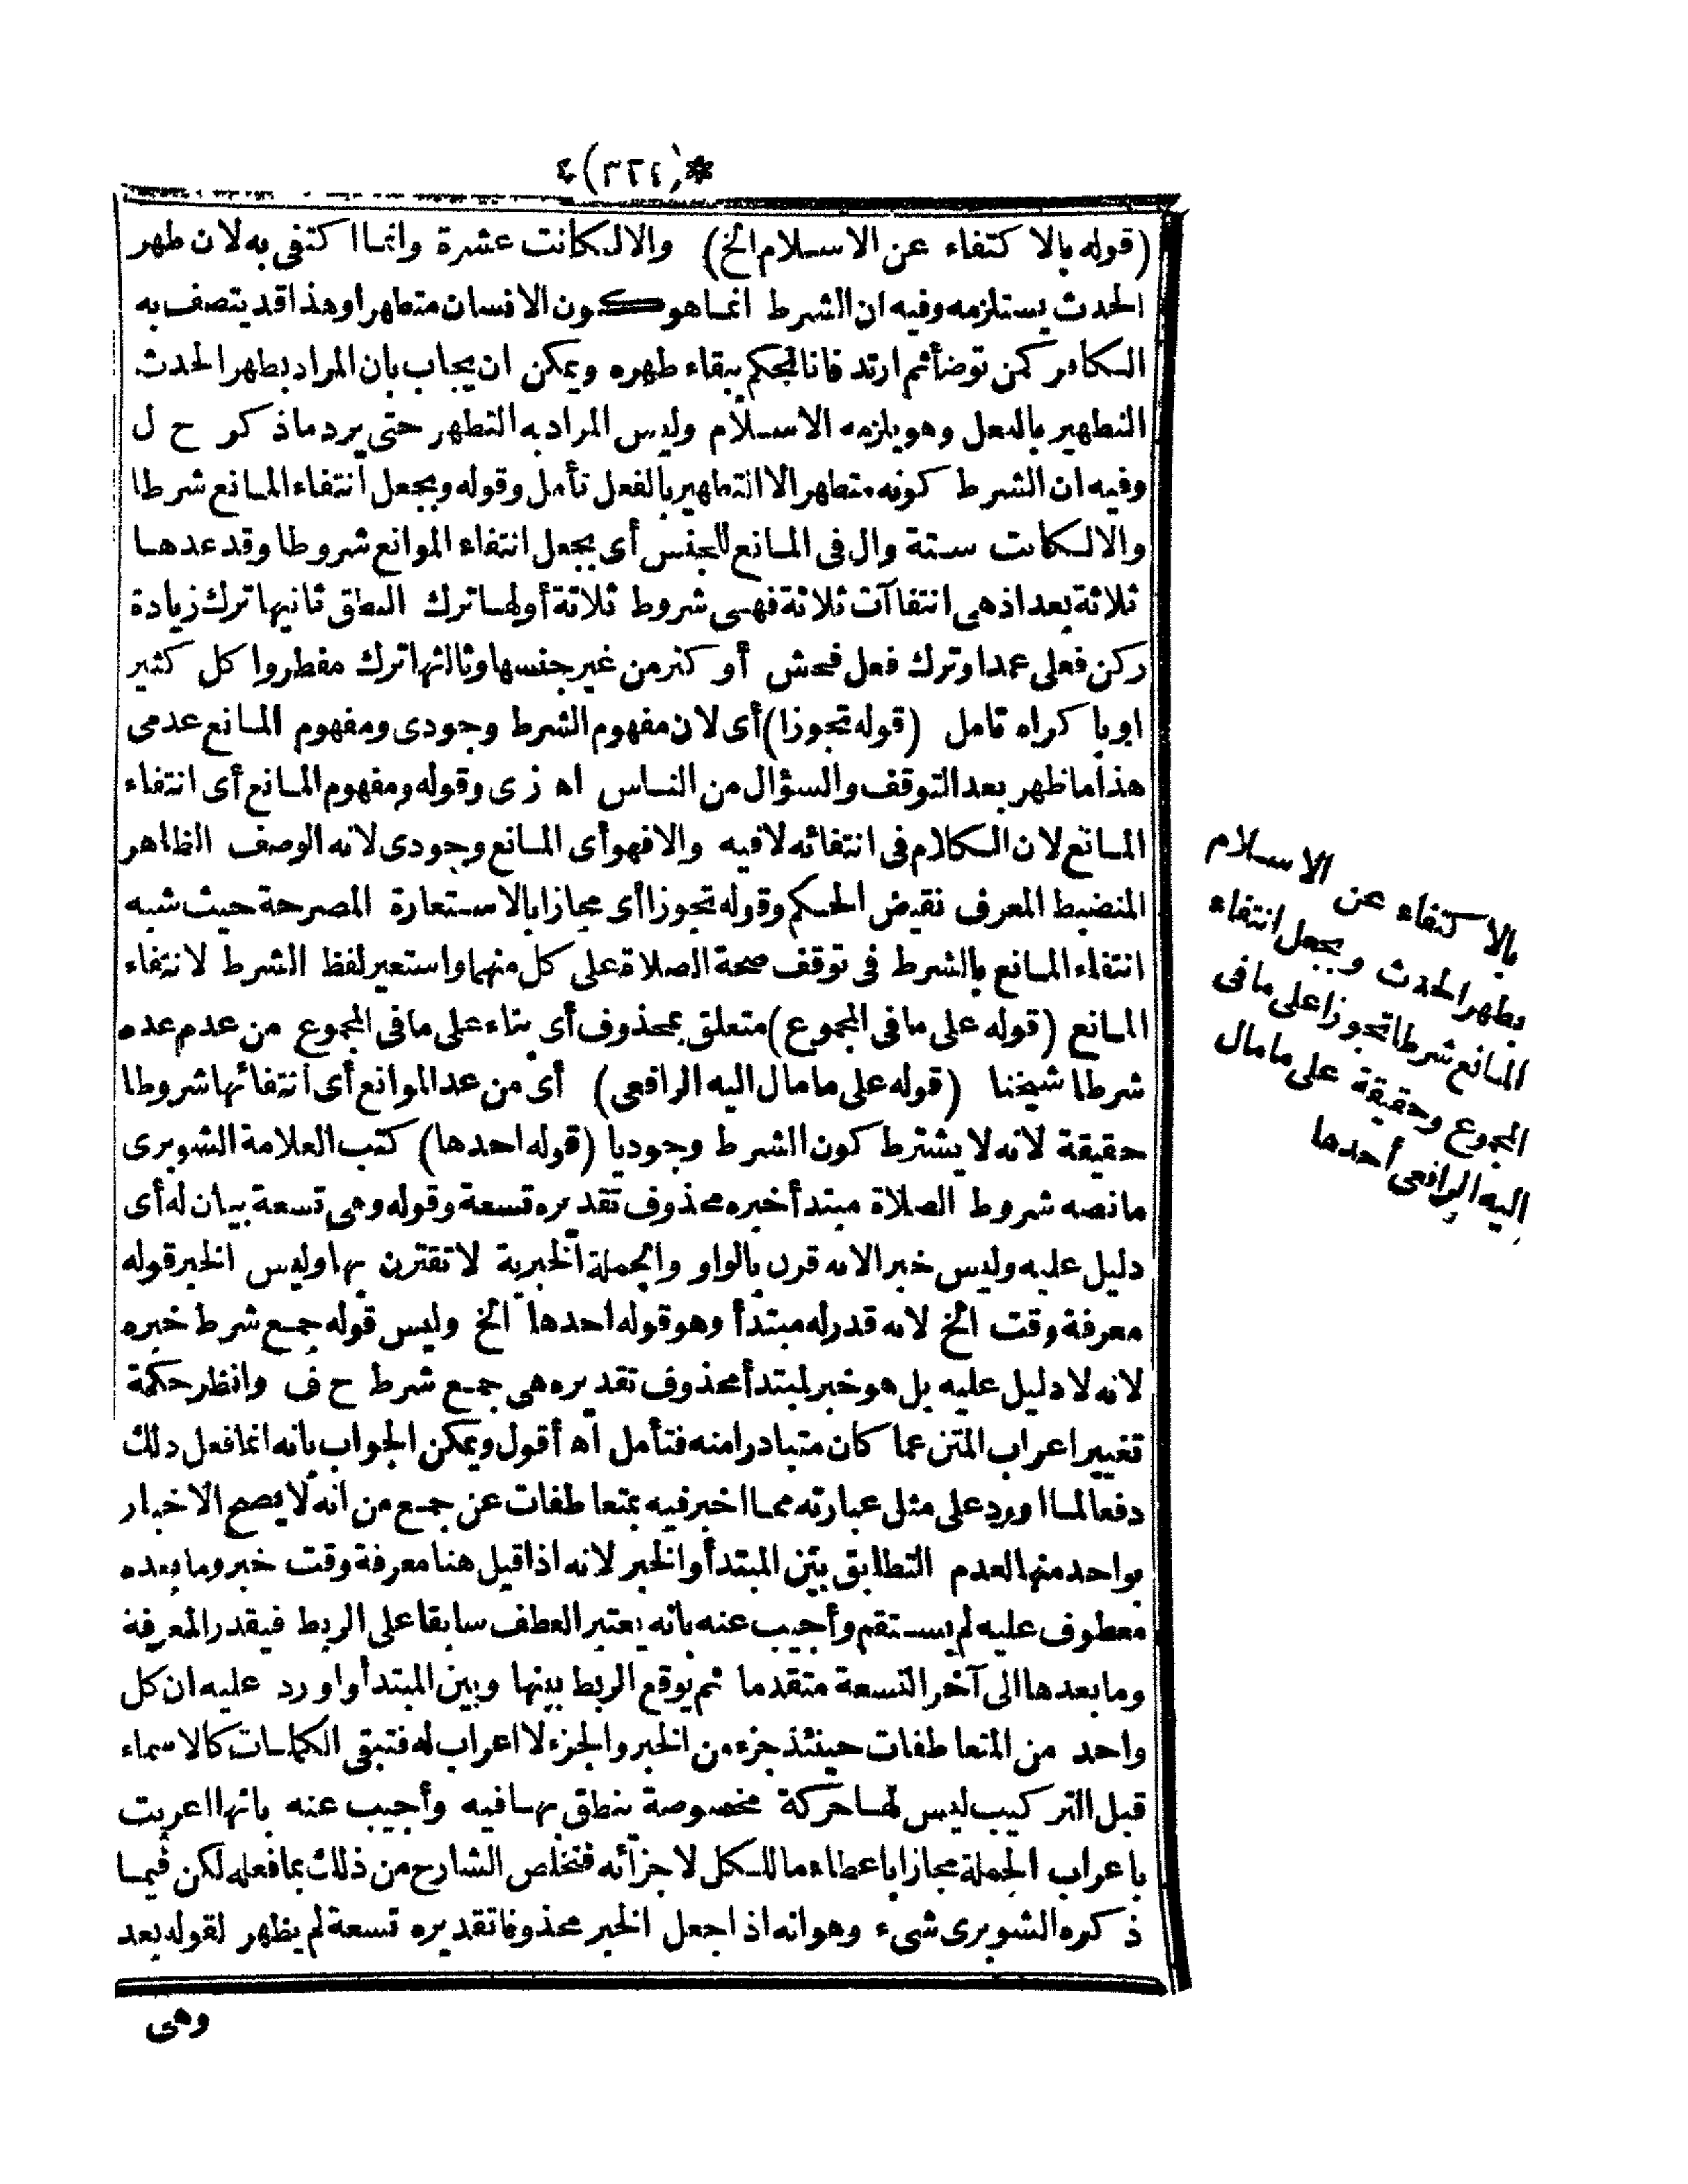 *(٣٢٤)*
(قوله بالاكتفاء عن الاسلام الخ) والالكانت عشرة وانما اكتفى به لان طهر
الحدث يستلزمه وفيه ان الشرط انما هو كون الانسان متطهرا وهذا قد يتصف به
الكافر كمن توضأ ثم ارتد فانا نحكم ببقاء طهره ويمكن ان يجاب بان المراد بطهر الحدث
التطهير بالفعل وهو يلزمه الاسلام وليس المراد به التطهر حتى يرد ماذكر ح ل
وفيه ان الشرط كونه متطهرا لا التطهير بالفعل تأمل وقوله ويجعل انتفاء المانع شرطا
والالكانت ستة وال فى المانع للجنس أى يجعل انتفاء الموانع شروطا وقد عدها
ثلاثة بعد اذ هى انتفاآت ثلاثة فهى شروط ثلاثة أولها ترك النطق ثانيها ترك زيادة
ركن فعلى عمدا وترك فعل فحش أو كثر من غير جنسها وثالثها ترك مفطر واكل كثير
او باكراه تامل (قوله تجوزا) أى لان مفهوم الشرط وجودى ومفهوم المانع عدمى
هذا ما ظهر بعد التوقف والسؤال من الناس اه ز ى وقوله ومفهوم المانع أى انتفاء
المانع لان الكلام فى انتفائه لافيه والا فهو أى المانع وجودى لانه الوصف الظاهر
المنضبط المعرف نقيض الحكم وقوله تجوزا أى مجازا بالاستعارة المصرحة حيث شبه
انتفاء المانع بالشرط فى توقف صحة الصلاة على كل منهما واستعير لفظ الشرط لانتفاء
المانع (قوله على ما فى المجموع) متعلق بمحذوف أى بناء على ما فى المجموع من عدم عده
شرطا شيخنا (قوله على ما مال اليه الرافعى) أى من عد الموانع أى انتفائها شروطا
حقيقة لانه لا يشترط كون الشرط وجوديا (قوله احدها) كتب العلامة الشوبرى
مانصه شروط الصلاة مبتدأ خبره محذوف تقديره تسعة وقوله وهى تسعة بيان له أى
دليل عليه وليس خبرا لانه قرن بالواو والجملة الخبرية لا تقترن بها وليس الخبر قوله
معرفة وقت الخ لانه قدر له مبتدأ وهو قوله احدها الخ وليس قوله جمع شرط خبره
لانه لا دليل عليه بل هو خبر لمبتدأ محذوف تقديره هى جمع شرط ح ف وانظر حكمة
تغيير اعراب المتن عما كان متبادرا منه فتأمل اه أقول ويمكن الجواب بانه انما فعل ذلك
دفعا لما اورد على مثل عبارته مما اخبر فيه بمتعاطفات عن جمع من انه لا يصح الاخبار
بواحد منها لعدم التطابق بين المبتدأ والخبر لانه اذا قيل هنا معرفة وقت خبر وما بعده
معطوف عليه لم يستقم وأجيب عنه بانه يعتبر العطف سابقا على الربط فيقدر المعرفة
وما بعدها الى آخر التسعة متقدما ثم يوقع الربط بينها وبين المبتدأ واورد عليه ان كل
واحد من المتعاطفات حينئذ جزء من الخبر والجزء لا اعراب له فتبقى الكلمات كالاسماء
قبل التركيب ليس لها حركة مخصوصة ينطق بها فيه وأجيب عنه بانها اعربت
باعراب الجملة مجازا باعطاء ما للكل لاجزائه فتخلص الشارح من ذلك بما فعله لكن فيما
ذكره الشوبرى شىء وهو انه اذا جعل الخبر محذوفا تقديره تسعة لم يظهر لقوله بعد
وهى
بالاكتفاء عن الاسلام
بطهر الحدث ويجعل انتفاء
المانع شرطا تجوزا على ما فى
المجموع وحقيقة على ما مال
اليه الرافعى أحدها